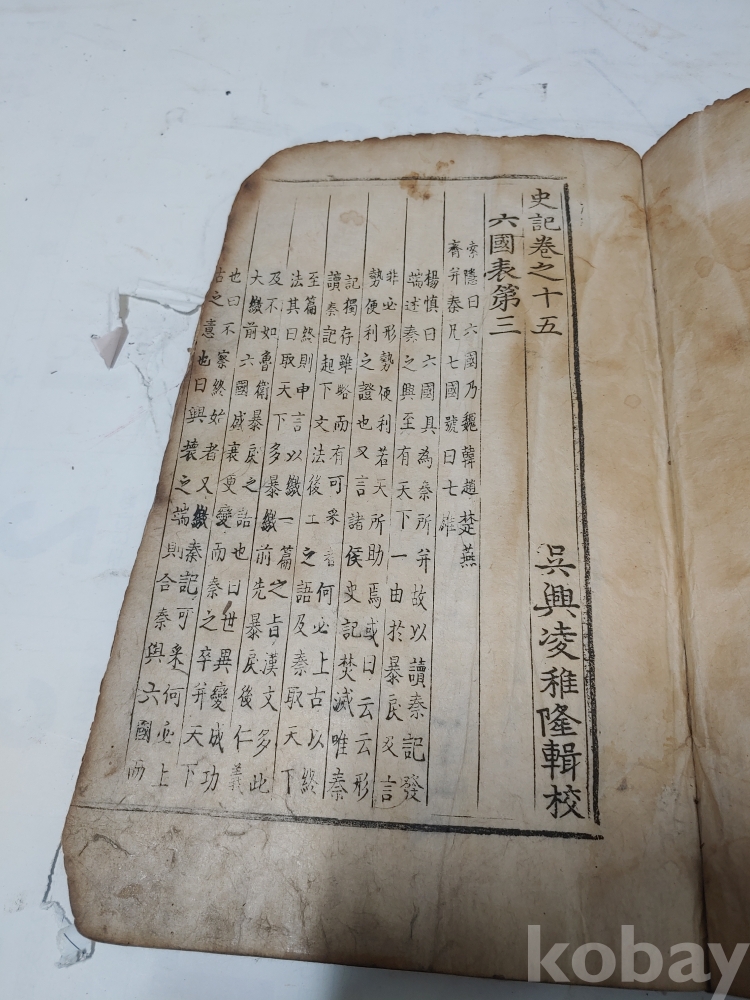 史記卷之十五
吳興凌稚隆輯校
六國表第三
索隱曰六國乃魏韓趙楚燕
齊并秦凡七國號曰七雄
楊慎曰六國具為秦所并故以讀秦記發
端述秦之興至有天下一由於暴戾及言
非必形勢便利若天所助焉或曰云云形
勢便利之證也又言諸侯史記焚滅唯秦
記獨存雖略而有可采者何必上古以終
讀秦記起下文法後王之語及秦取天下
至篇終則申言以繳一篇之旨漢文多此
法其曰取天下多暴繳前先暴戾後仁義
及不如魯衛暴戾之語也曰世異變成功
大繳前六國盛衰更變而秦之卒并天下
也曰不察終始者又繳秦記可采何必上
古之意也曰興壞之端則合秦與六國而
kobay